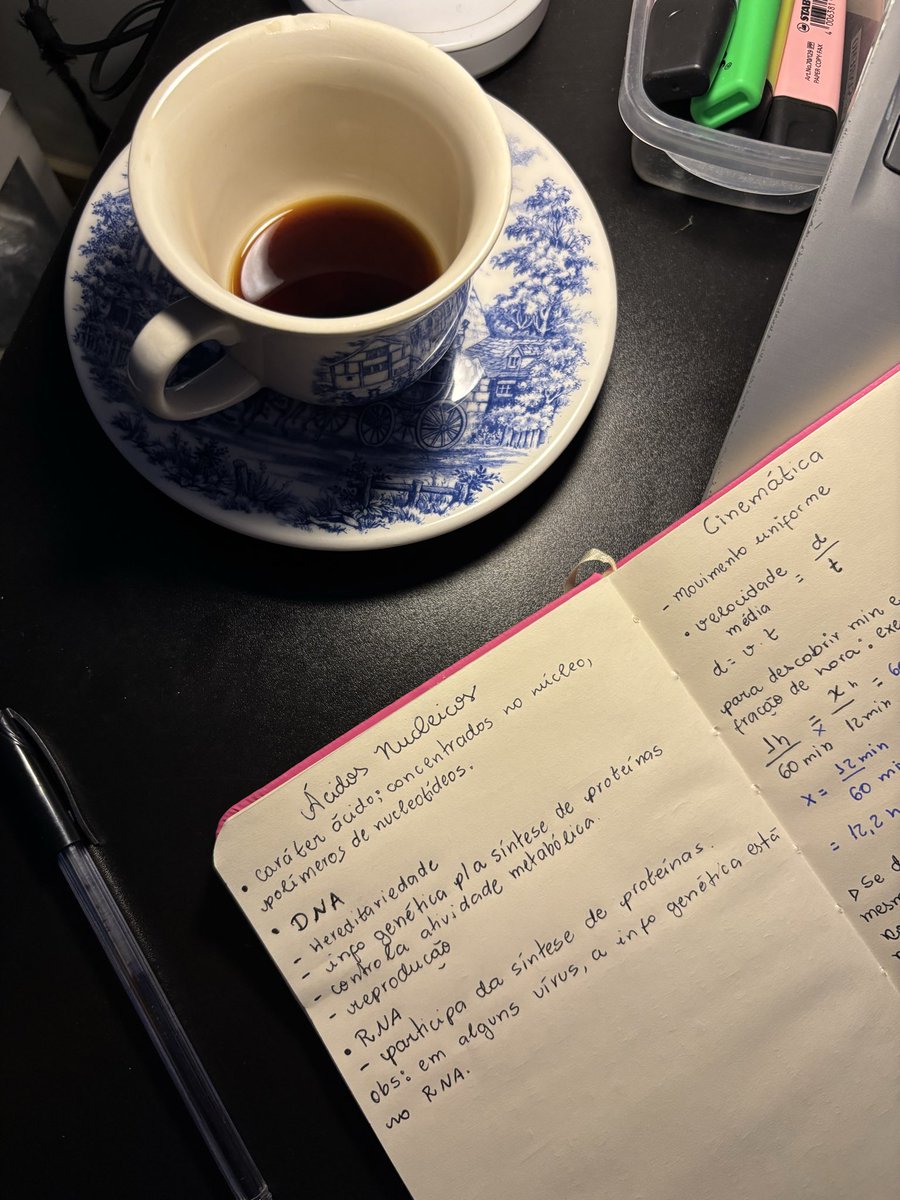 STAB
Art.No.70/129
PAPER COPY FAX
4 006381
Ácidos Nucleicos
• caráter ácido; concentrados no núcleo,
polímeros de nucleotídeos.
• DNA
- Hereditariedade
- info genética p/a síntese de proteínas
- controla atividade metabólica.
- reprodução
• RNA
- participa da síntese de proteínas.
obs: em alguns vírus, a info genética está
no RNA.
Cinemática
- movimento uniforme
• velocidade média = d/t
d = v.t
para descobrir min e
fração de hora: exe
1h/60 min = x h/12 min =
x = 12 min/60 mi
▷ Se d
mesm